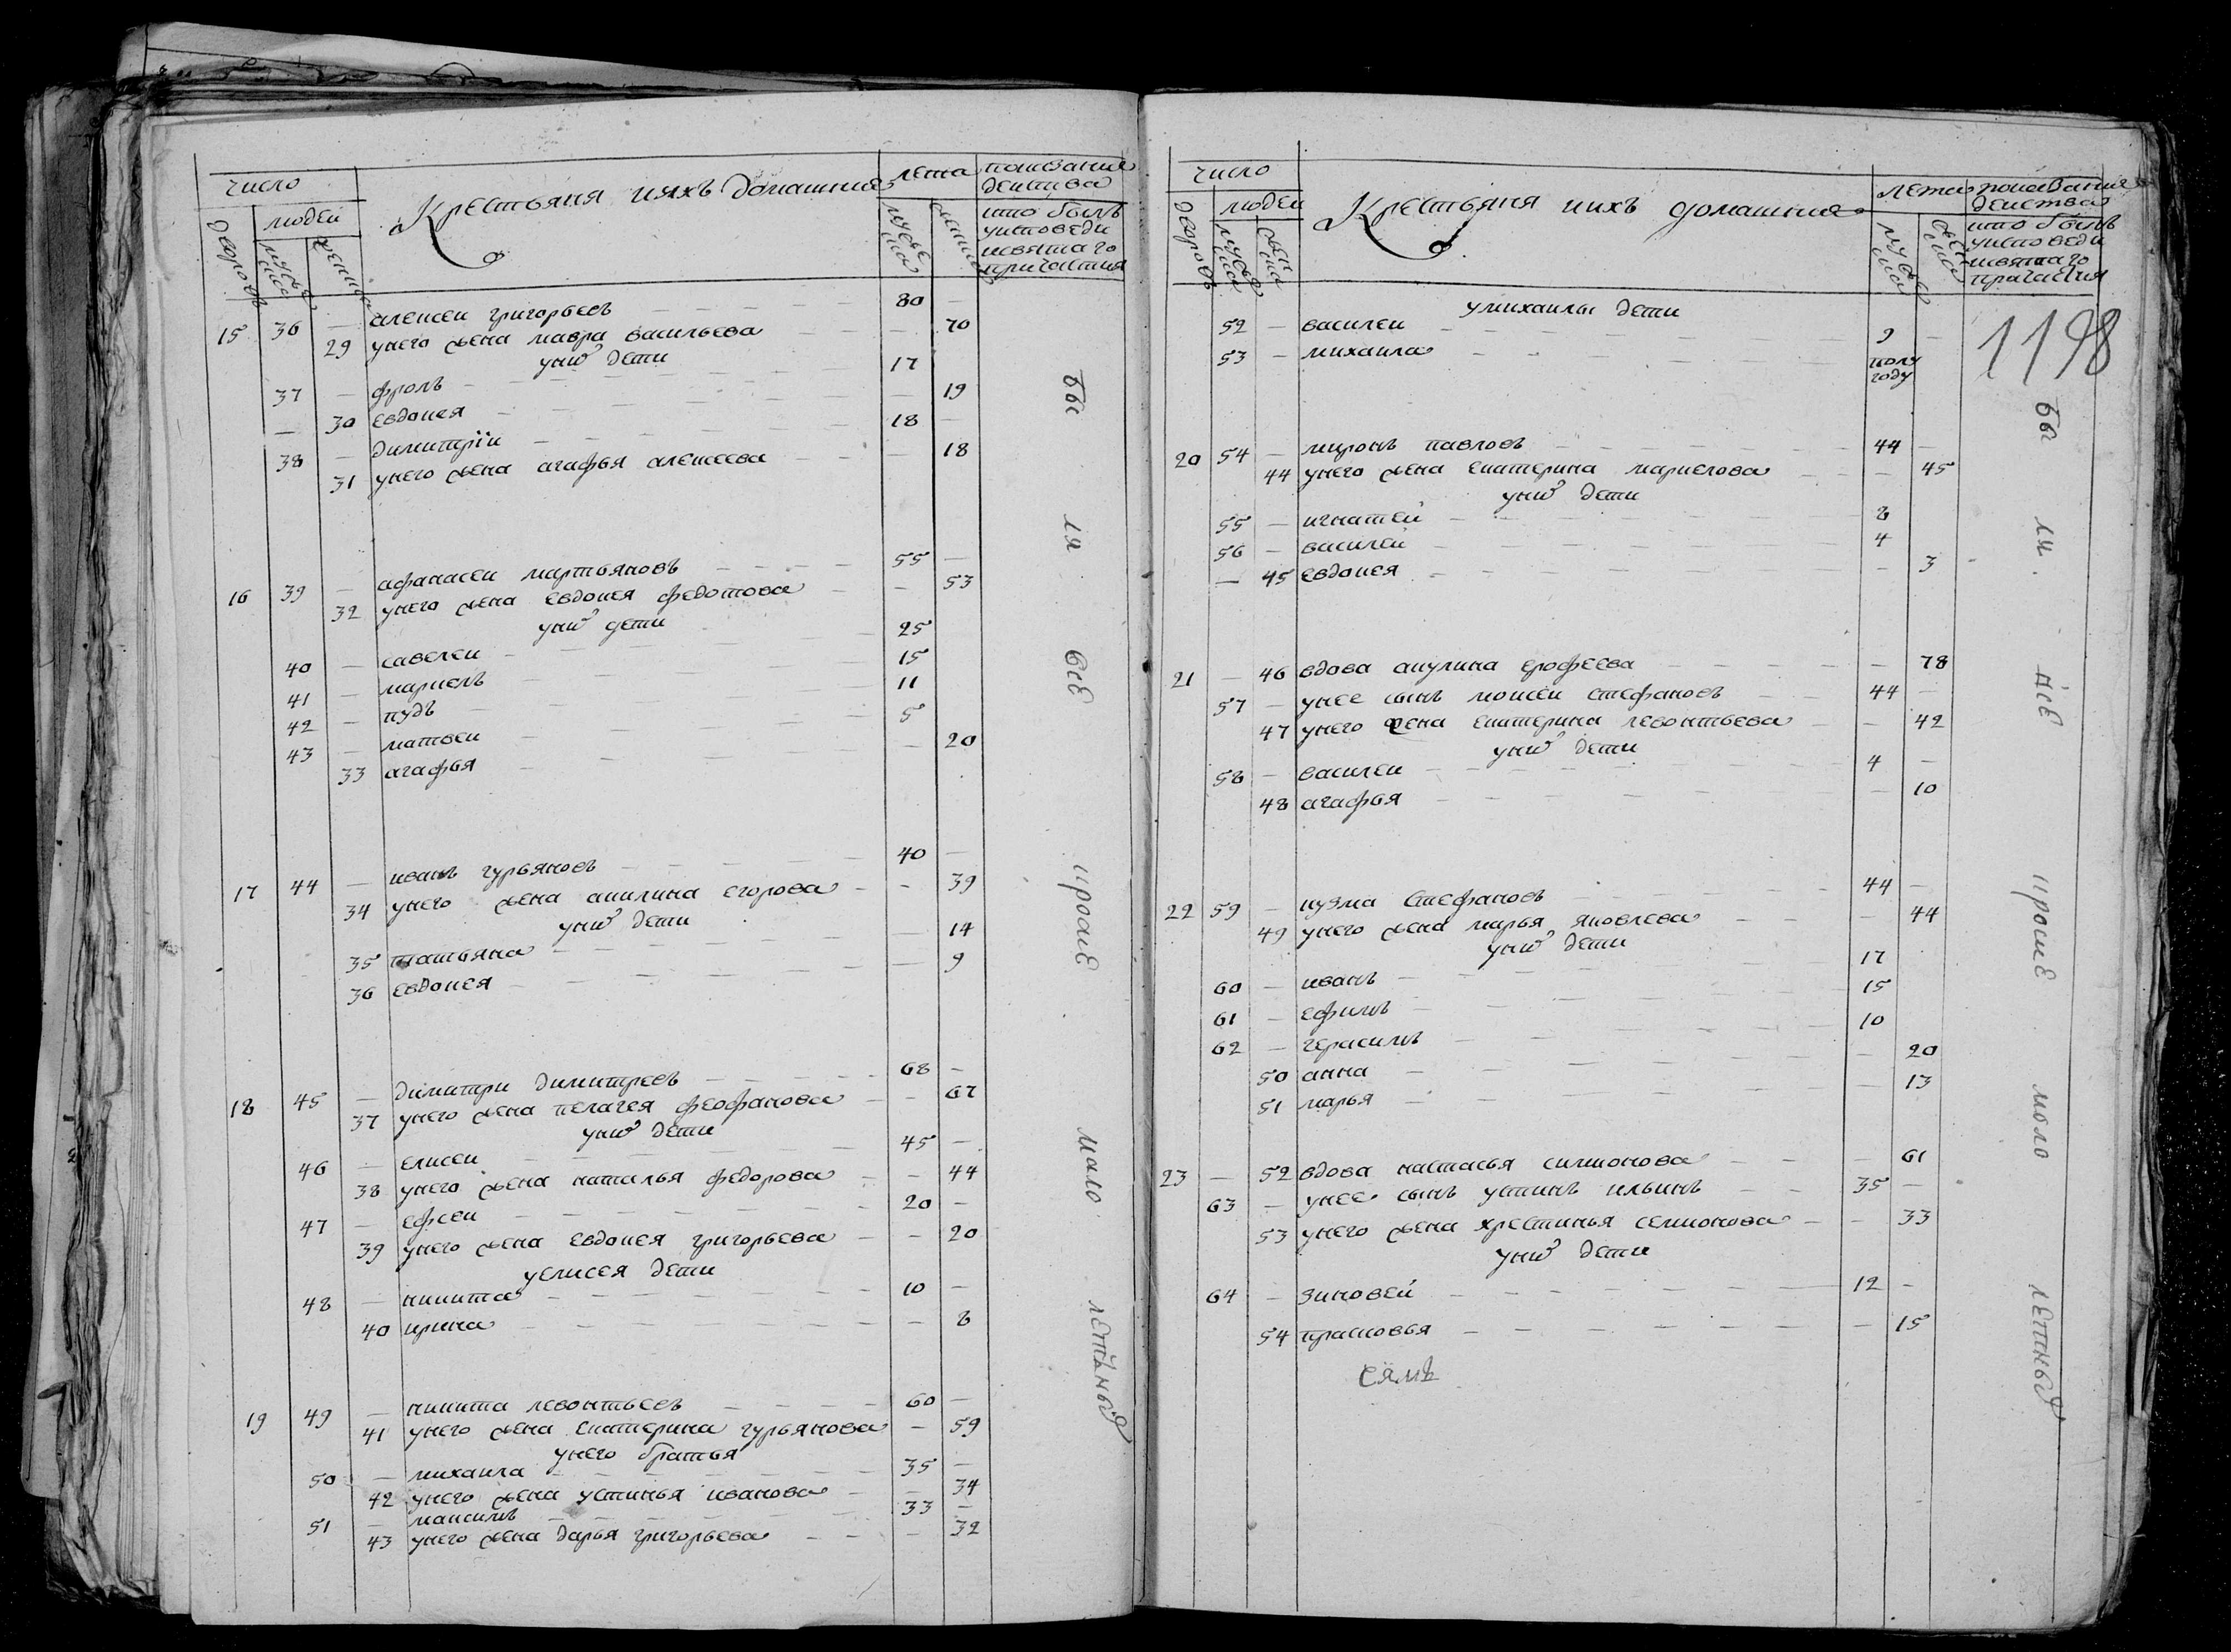 число
людей
дворовъ
мужеска
женска
Крестьяня иихъ домашния
лета
мужеска
женска
покозание
действа
кто былъ
уисповеди
исвятаго
причастия
15 36 — алексеи григорьевъ — 80 —
29 унего жена мавра васильева — 70
униⷯ дети
37 — фролъ — 17
— 30 евдокея — 19
38 — димитрїи — 18 —
31 унего жена агафья алексеева — 18
16 39 — афанасеи мартьяновъ — 55 —
32 унего жена евдокея федотова — 53
униⷯ дети
40 — савелеи — 25
41 — маркелъ — 15
42 — пудъ — 11
43 — матвеи — 5
33 агафья — 20
17 44 — иванъ гурьяновъ — 40 —
34 унего жена акилина егорова — 39
униⷯ дети
35 татьяна — 14
36 евдокея — 9
18 45 — димитри димитревъ — 68 —
37 унего жена пелагея феофанова — 67
униⷯ дети
46 — елисеи — 45 —
38 унего жена наталья федорова — 44
47 — ефсеи — 20 —
39 унего жена евдокея григорьева — 20
уелисея дети
48 — никита — 10 —
40 ирина — 8
19 49 — никита левонтьевъ — 60 —
41 унего жена екатерина гурьянова — 59
унего братья
50 — михаила — 35 —
42 унего жена устинья иванова — 34
51 — максимъ — 33 —
43 унего жена дарья григорьева — 32
бы ля всѣ кромѣ мало летныⷯ
число
людей
дворовъ
мужеска
женска
Крестьяня иихъ домашния
лета
мужеска
женска
показание
действа
кто былъ
уисповеди
исвятаго
прачастия
1198
умихаилы дети
52 — василеи — 9 —
53 — михаила — полу
году
20 54 — миронъ павловъ — 44 —
44 унего жена екатерина маркелова — 45
униⷯ дети
55 — игнатей — 8
56 — василеи — 4
— 45 евдокея — 3
21 — 46 вдова акулина ерофеева — 78
57 — унее сынъ моисеи стефановъ — 44 —
47 унего жена екатерина левонтьева — 42
униⷯ дети
58 — василеи — 4 —
48 агафья — 10
22 59 — кузма стефановъ — 44 —
49 унего жена марья яковлева — 44
униⷯ дети
60 — иванъ — 17
61 — ефимъ — 15
62 — герасимъ — 10
50 анна — 20
51 марья — 13
23 — 52 вдова настасья симионова — 61
63 — унее сынъ устинъ ильинъ — 35 —
53 унего жена хрестинья семионова — 33
униⷯ дети
64 — зиновей — 12 —
54 прасковья — 15
бы ля. всѣ кромѣ моло летныⷯ